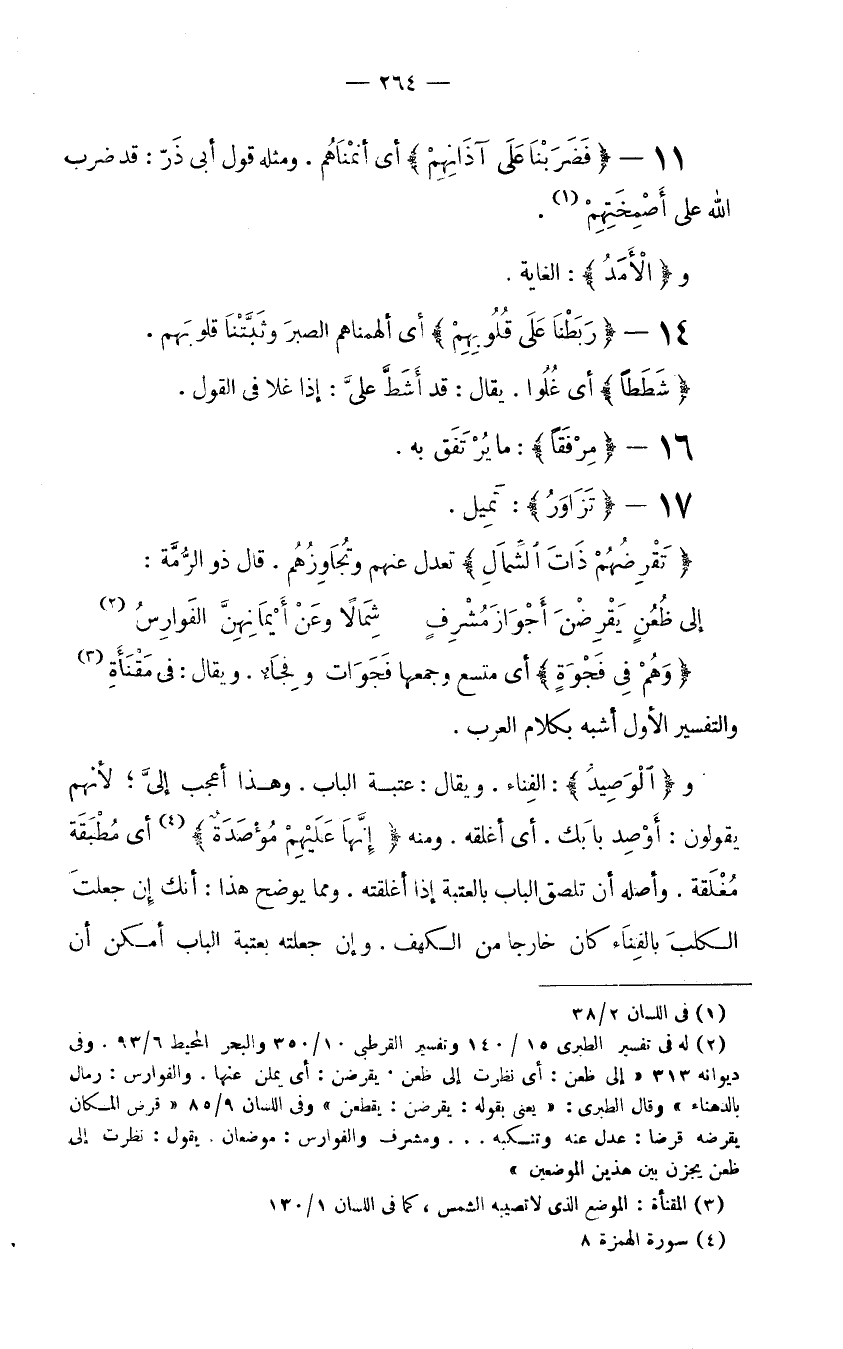 — ٢٦٤ —
١١ — ﴿ فَضَرَبْنَا عَلَى آذَانِهِمْ ﴾ أى أَنَمْنَاهُم . ومثله قول أبى ذَرّ : قد ضرب
الله على أَصْمِخَتِهِمْ (١) .
و ﴿ الْأَمَدُ ﴾ : الغاية .
١٤ — ﴿ رَبَطْنَا عَلَى قُلُوبِهِمْ ﴾ أى ألهمناهم الصبرَ وثَبَّتْنَا قلوبَهم .
﴿ شَطَطاً ﴾ أى غُلُوا . يقال : قد أَشَطَّ علىَّ : إذا غلا فى القول .
١٦ — ﴿ مِرْفَقاً ﴾ : ما يُرْتَفَق به .
١٧ — ﴿ تَزَاوَرُ ﴾ : تَمِيل .
﴿ تَقْرِضُهُمْ ذَاتَ ٱلشِّمَالِ ﴾ تعدل عنهم وتُجَاوِزُهُم . قال ذو الرُّمَّة :
إلى ظُعُنٍ يَقْرِضْنَ أَجْوَازَ مُشْرِفٍ شِمَالًا وعَنْ أَيْمَانِهِنَّ الفَوارِسُ (٢)
﴿ وَهُمْ فِي فَجْوَةٍ ﴾ أى متسع وجمعها فَجَوَات وفِجَاء . ويقال : فى مَقْنَأَةٍ (٣)
والتفسير الأول أشبه بكلام العرب .
و ﴿ ٱلْوَصِيدُ ﴾ : الفِناء . ويقال : عتبة الباب . وهذا أعجب إلىَّ ؛ لأنهم
يقولون : أَوْصِد بابَك . أى أغلقه . ومنه ﴿ إِنَّهَا عَلَيْهِمْ مُؤْصَدَةٌ ﴾ (٤) أى مُطْبَقَة
مُغْلَقة . وأصله أن تلصق الباب بالعتبة إذا أغلقته . ومما يوضح هذا : أنك إن جعلتَ
الكلبَ بالفِنَاء كان خارجا من الكهف . وإن جعلته بعتبة الباب أمكن أن
(١) فى اللسان ٣٨/٢
(٢) له فى تفسير الطبرى ١٥ / ١٤٠ وتفسير القرطبى ٣٥٠/١٠ والبحر المحيط ٩٣/٦ . وفى
ديوانه ٣١٣ « إلى ظعن : أى نظرت إلى ظعن . يقرضن : أى يملن عنها . والفوارس : رمال
بالدهناء » وقال الطبرى : « يعنى بقوله : يقرضن : يقطعن » وفى اللسان ٨٥/٩ « قرض المكان
يقرضه قرضا : عدل عنه وتنكبه . . . ومشرف والفوارس : موضعان . يقول : نظرت إلى
ظعن يجزن بين هذين الموضعين »
(٣) المقنأة : الموضع الذى لا تصيبه الشمس ، كما فى اللسان ١٣٠/١
(٤) سورة الهمزة ٨